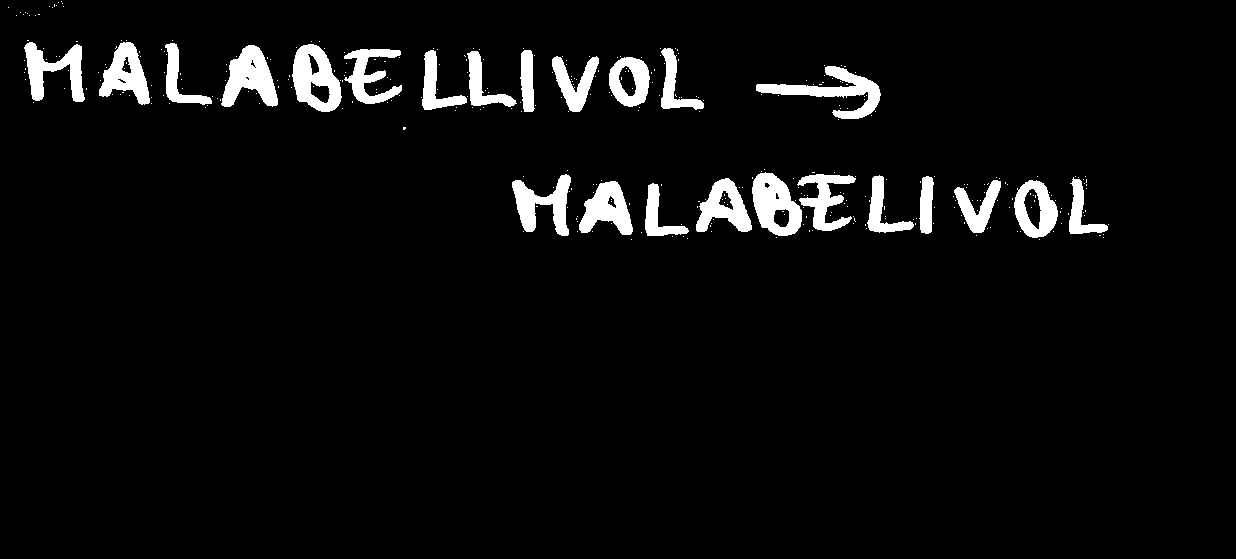 MALABELLIVOL →
MALABELIVOL